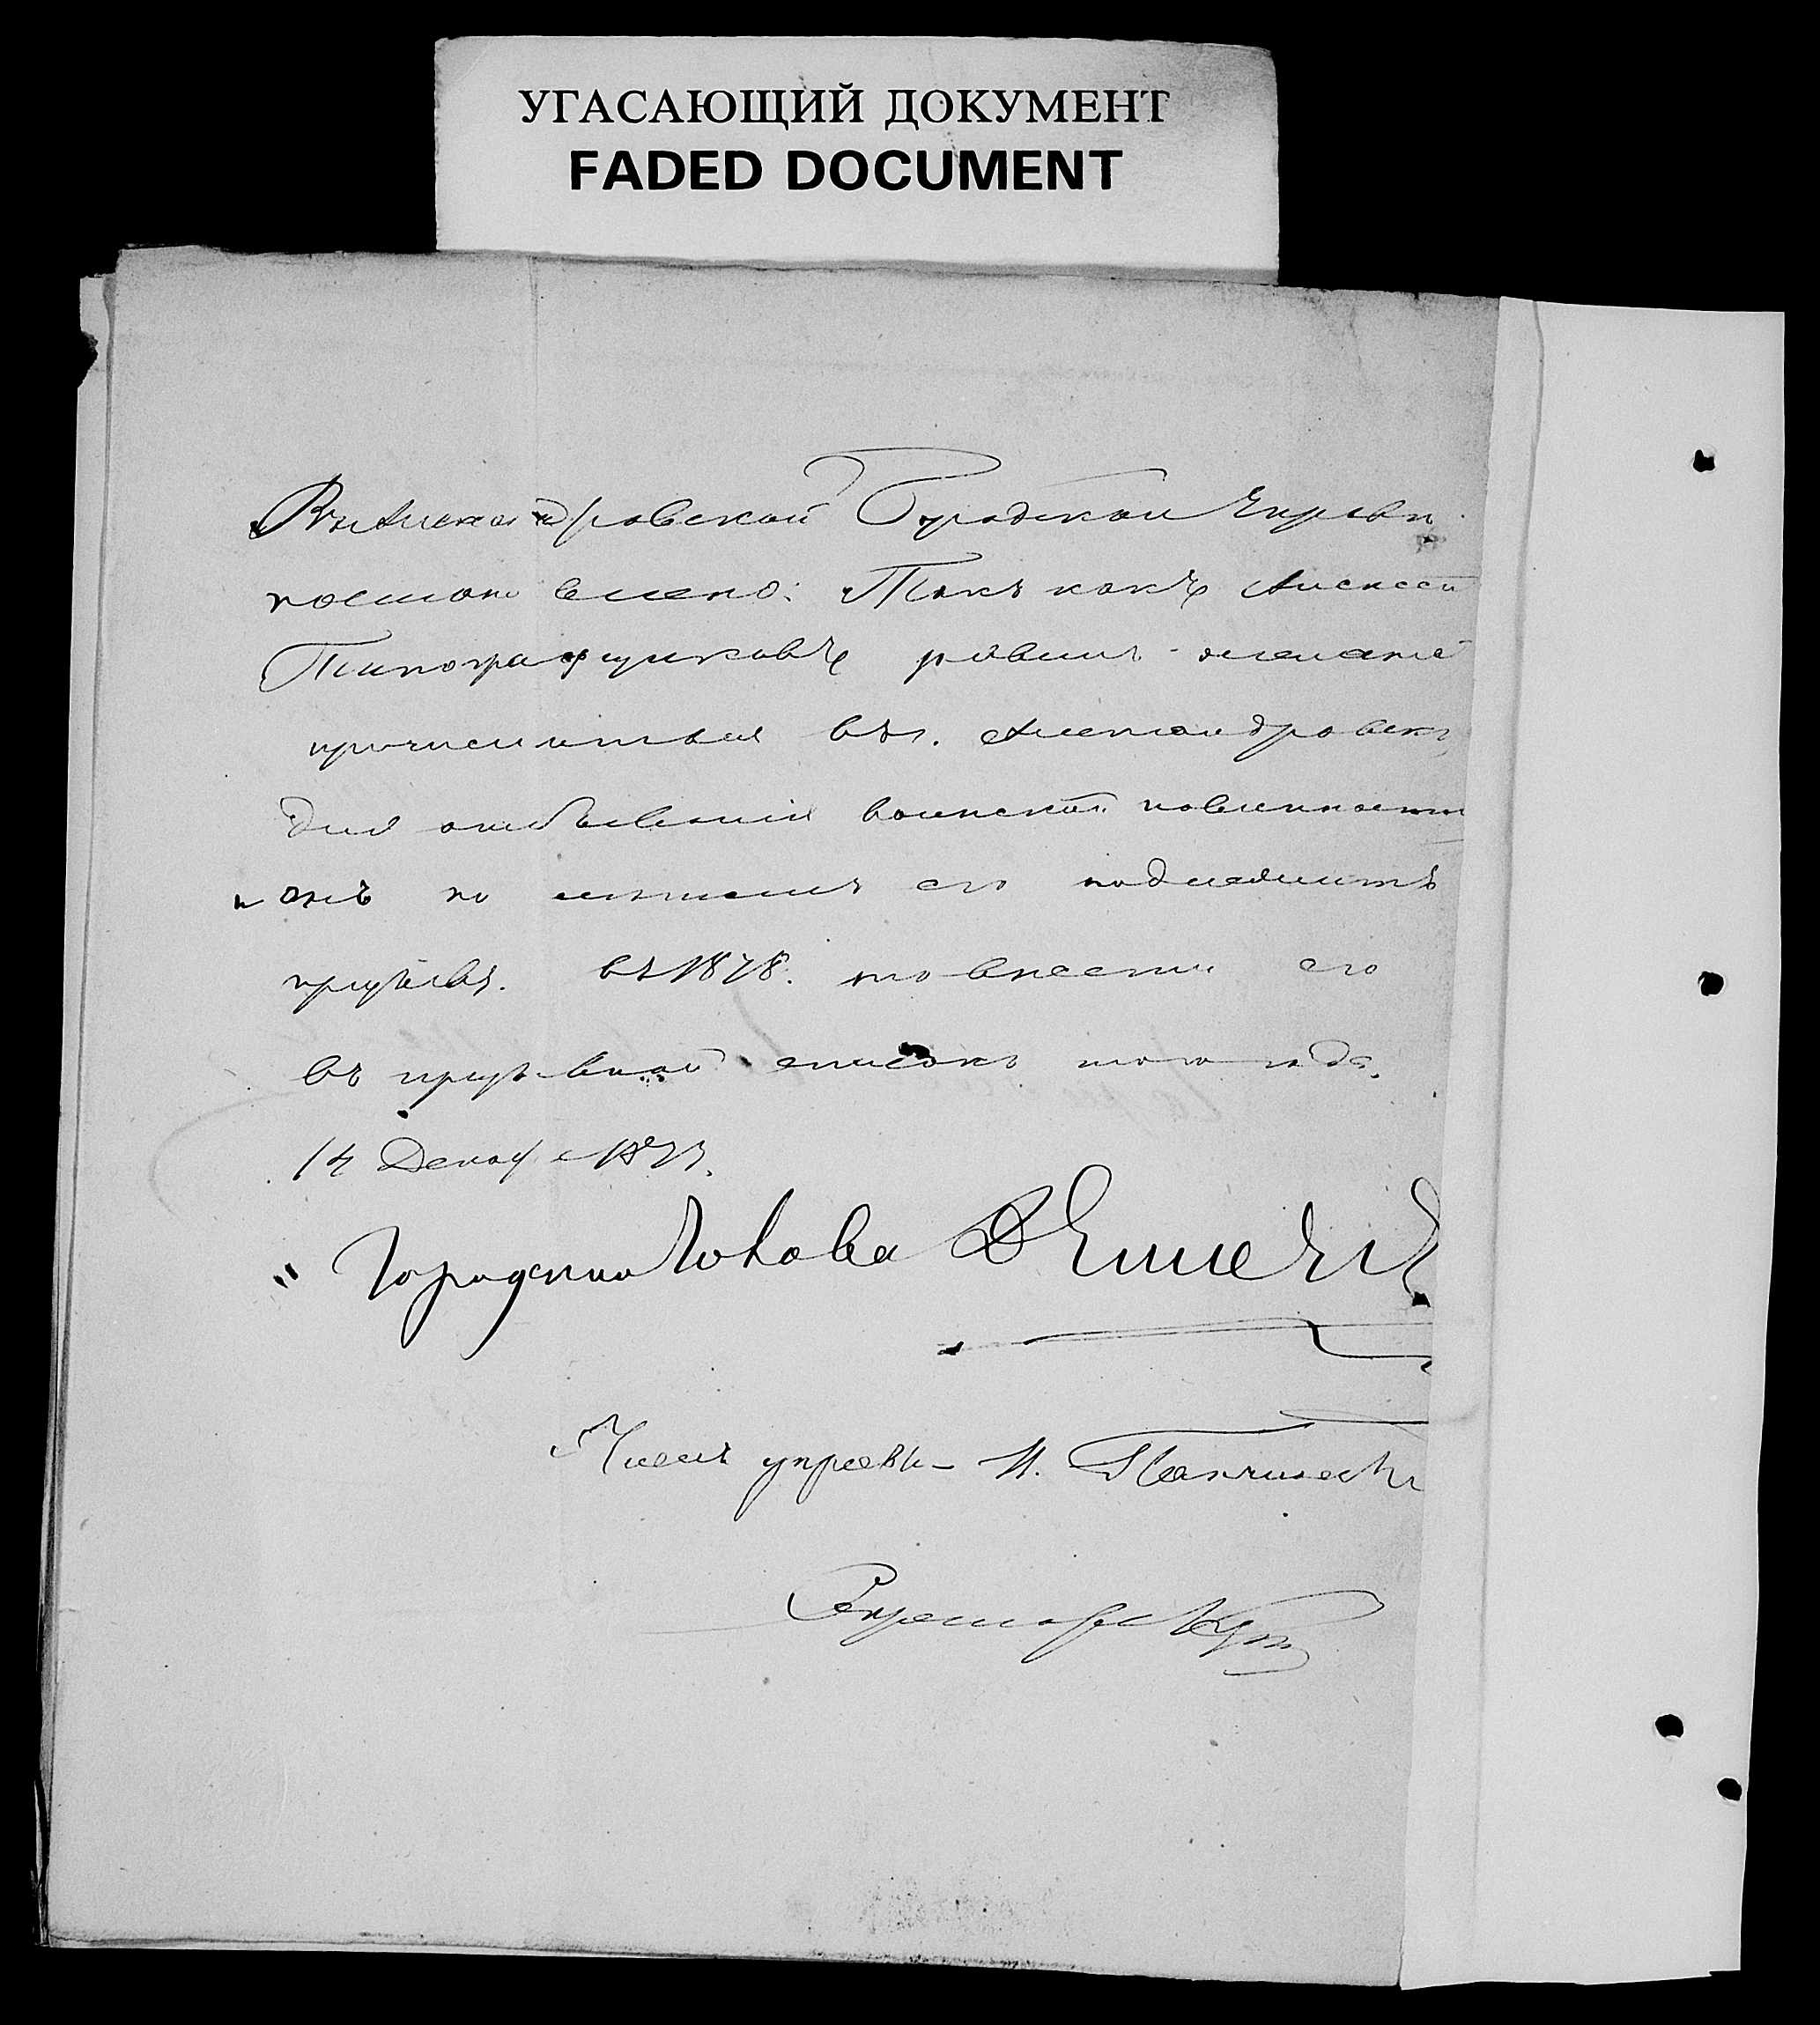 УГАСАЮЩИЙ ДОКУМЕНТ
FADED DOCUMENT
Въ Александровской Городской Управѣ
постановлено: Такъ какъ Алексей
Типографщиковъ желаніе
причислиться въ г. Александровскъ
для отбыванія воинской повинности
и онъ по лѣтамъ его подлежитъ
призыву въ 1878. то внести его
въ призывной списокъ того года.
14 Декабр 187
Городской Голова
Членъ управы И.
Секретарь